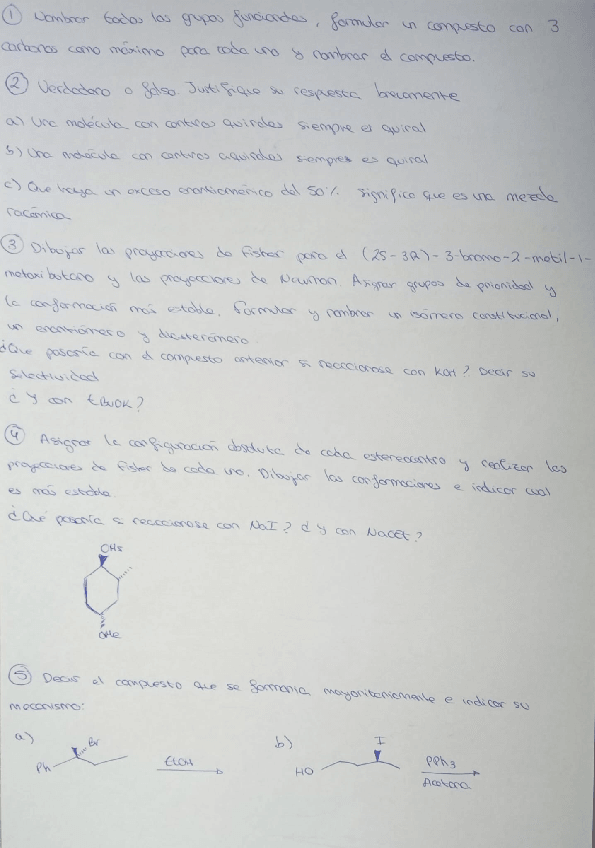 ① Nombrar todos los grupos funcionales, formular un compuesto con 3
carbonos como máximo para cada uno y nombrar el compuesto.
② Verdadero o falso. Justifique su respuesta brevemente
a) Una molécula con centros quirales siempre es quiral
b) Una molécula con centros aquirales siempre es quiral
c) Que haya un exceso enantiomérico del 50% significa que es una mezcla
racémica
③ Dibujar las proyecciones de Fisher para el (2S-3R)-3-bromo-2-metil-1-
metoxibutano y las proyecciones de Newman. Asignar grupos de prioridad y
la conformación más estable. Formular y nombrar un isómero constitucional,
un enantiómero y diasterómero
¿Que pasaría con el compuesto anterior si reaccionase con KOH? Decir su
selectividad
¿ Y con tBuOK?
④ Asignar la configuración absoluta de cada estereocentro y realizar las
proyecciones de Fisher de cada uno. Dibujar las conformaciones e indicar cual
es más estable.
¿Qué pasaría si reaccionase con NaI? ¿ Y con NaOEt?
OMe
⑤ Decir el compuesto que se formaría mayoritariamente e indicar su
mecanismo:
a) Br Ph EtOH
b) I HO PPh3 Acetona